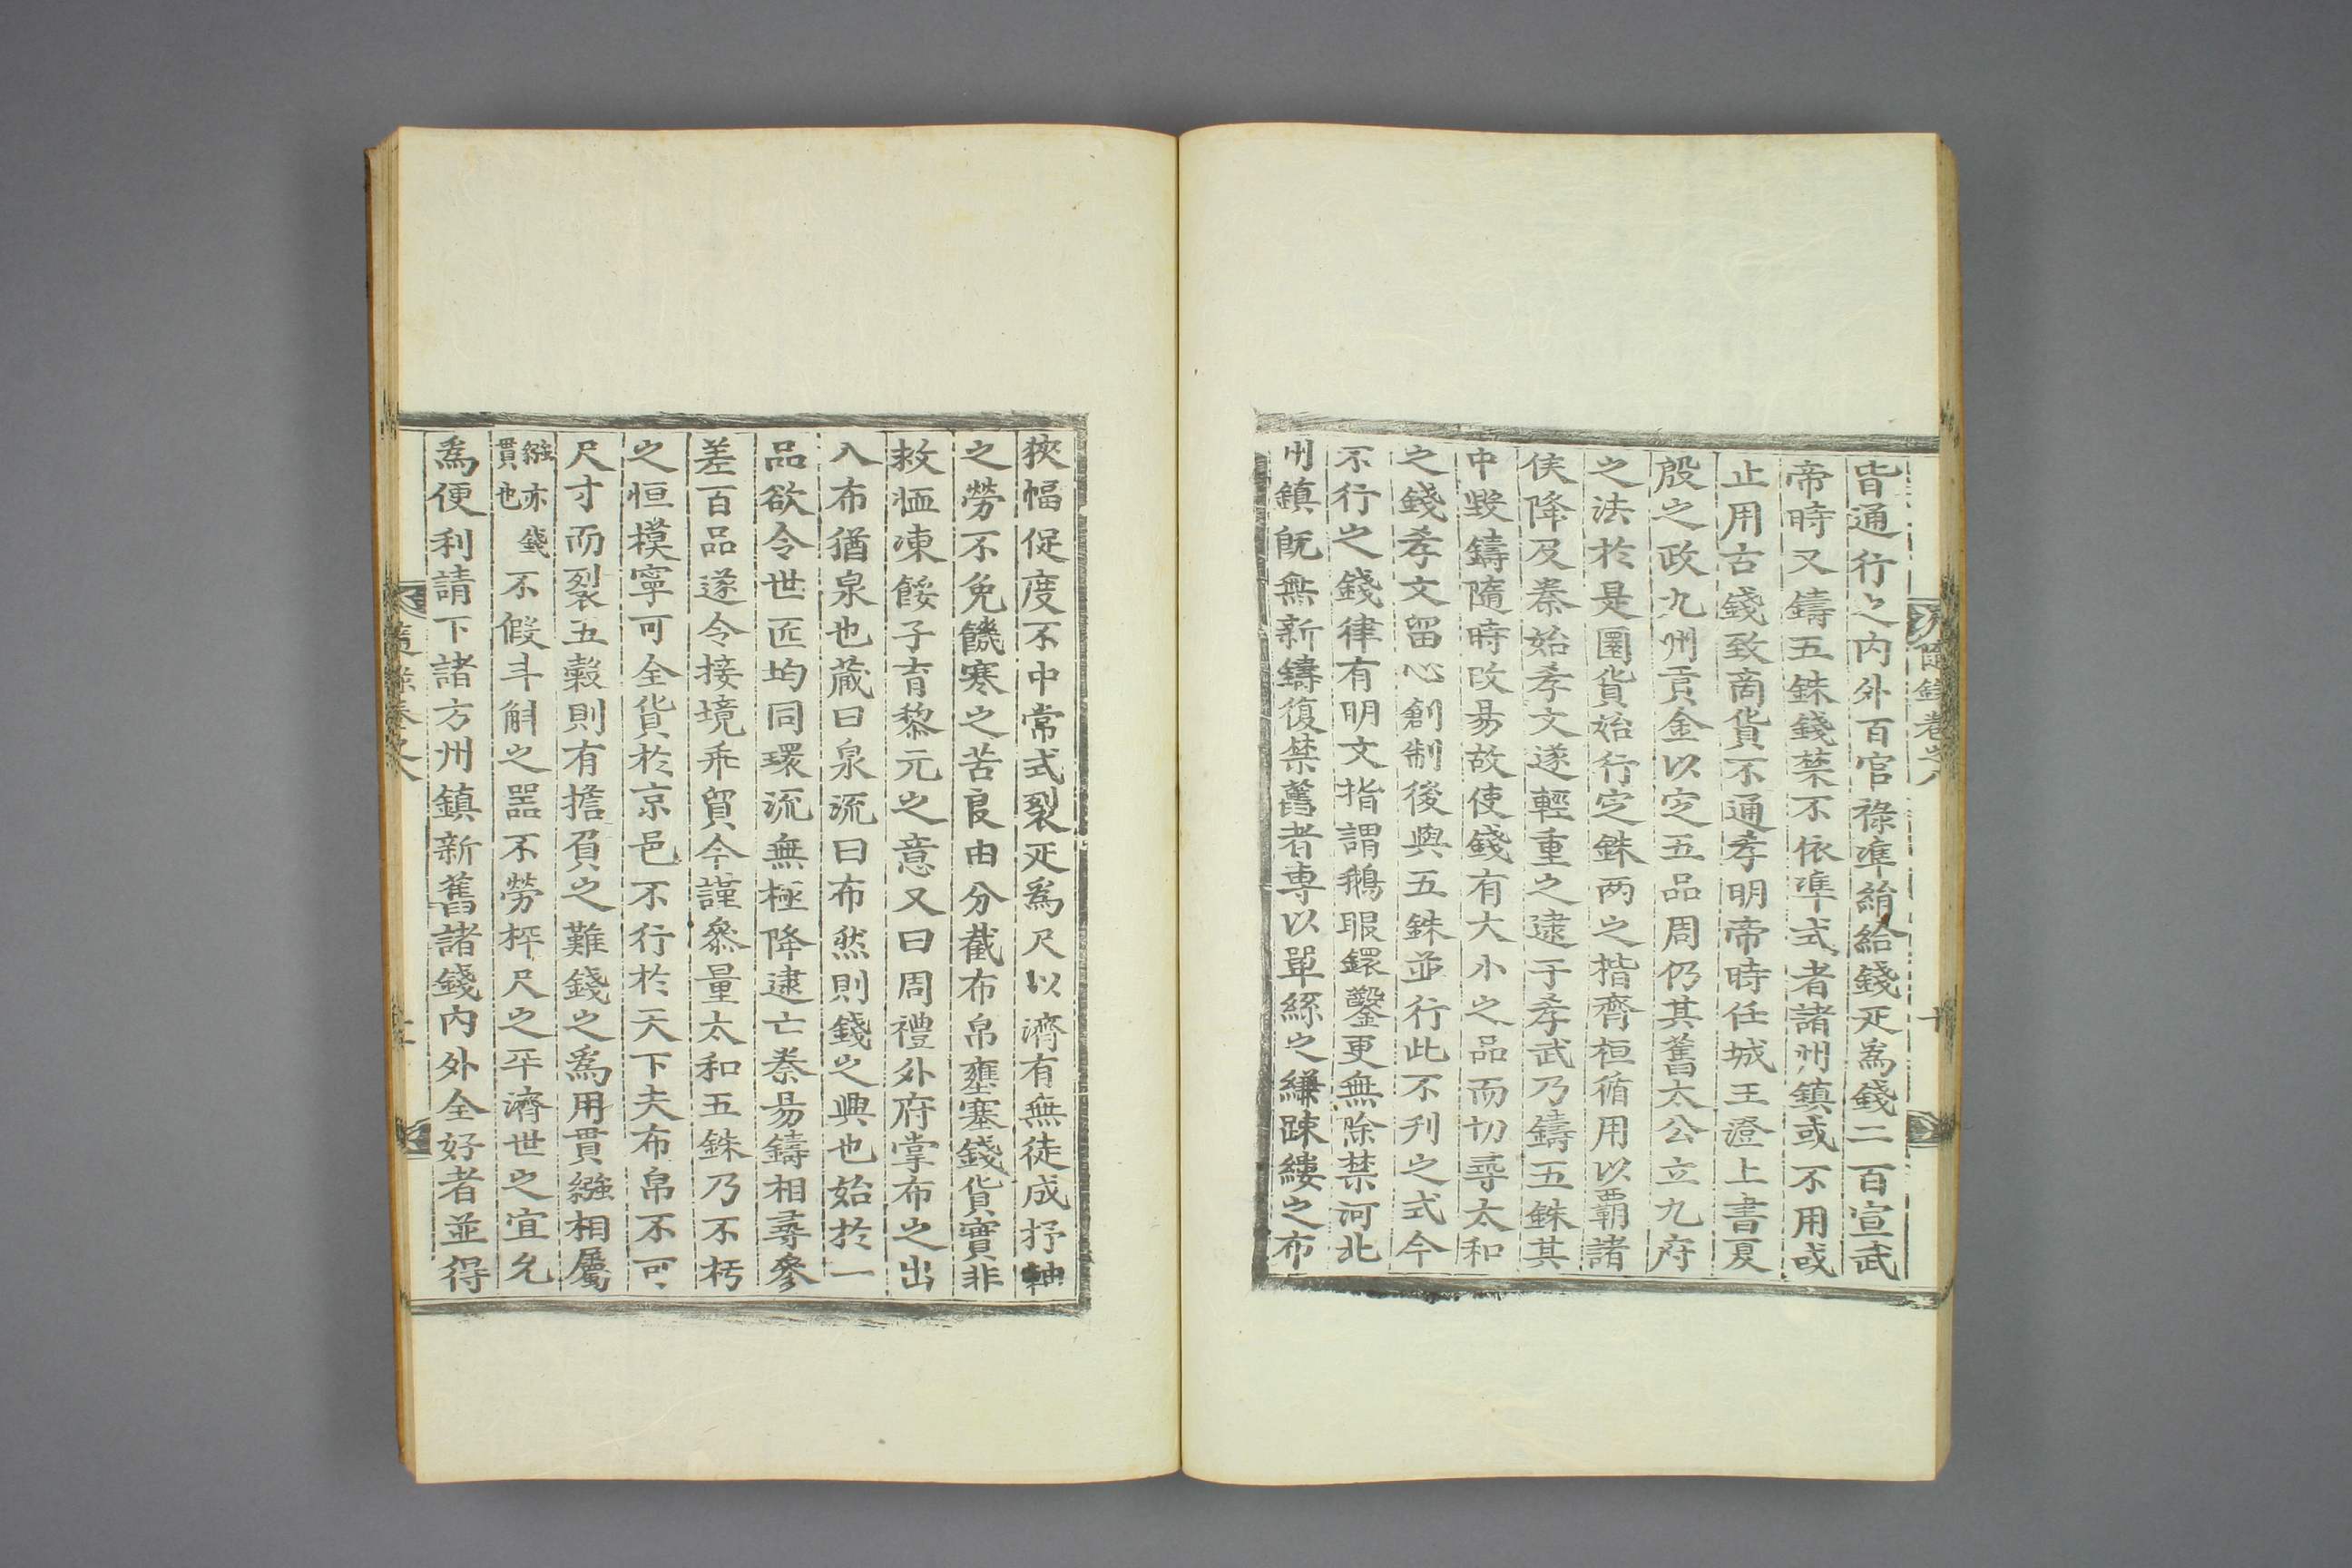 皆通行之內外百官祿準絹給錢疋爲錢二百宣武
帝時又鑄五銖錢禁不依準式者諸州鎮或不用或
止用古錢致商貨不通孝明帝時任城王澄上書夏
殷之政九州貢金以定五品周仍其舊太公立九府
之法於是圜貨始行定銖两之揩齊桓循用以覇諸
侯降及秦始孝文遂輕重之逮于孝武乃鑄五銖其
中毀鑄隨時改昜故使錢有大小之品而切尋太和
之錢孝文留心創制後與五銖並行此不刋之式今
不行之錢律有明文指謂鵝眼鐶鑿更無除禁河北
州鎮旣無新鑄復禁舊者専以單絲之縑踈縷之布
狹幅促度不中常式裂疋爲尺以濟有無徒成抒軸
之勞不免饑寒之苦良由分截布帛壅塞錢貨實非
救恤凍餒子育黎元之意又曰周禮外府掌布之出
入布猶泉也蔵曰泉流曰布然則錢之興也始於一
品欲令世匠均同環流無極降逮亡秦昜鑄相尋參
差百品遂令接境乖貿今謹叅量太和五銖乃不朽
之恒模寧可全貨於京邑不行於天下夫布帛不可
尺寸而裂五糓則有擔負之難錢之爲用貫繦相屬
繦亦錢
貫也
不假斗斛之噐不勞秤尺之平濟世之宜允
爲便利請下諸方州鎮新舊諸錢內外全好者並得